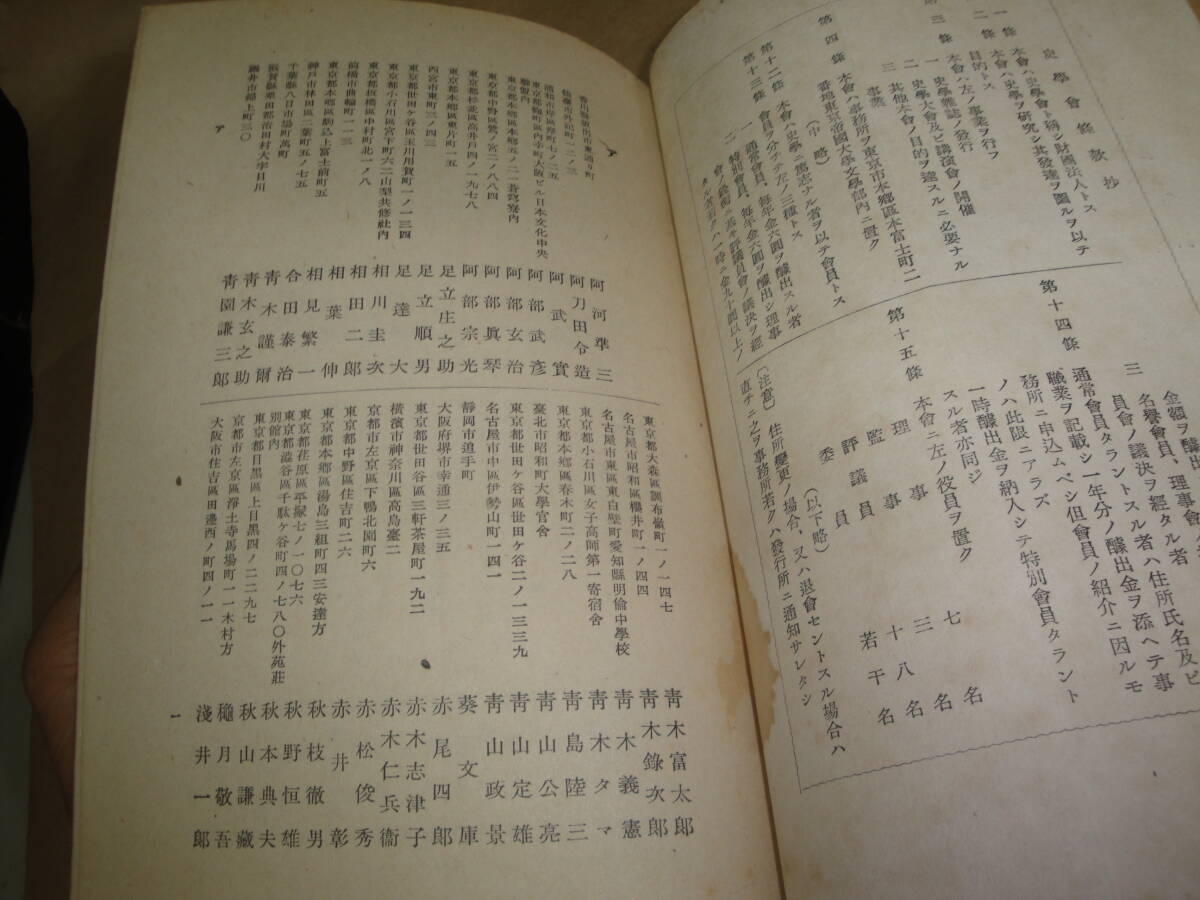 史學會條款抄
一條 本會ハ史學會ト稱シ財團法人トス
二條 本會ハ史學ヲ研究シ其發達ヲ圖ルヲ以テ
目的トス
第三條 本會ハ左ノ事業ヲ行フ
一 史學雜誌ノ發行
二 史學大會及ビ講演會ノ開催
三 其他本會ノ目的ヲ達スルニ必要ナル
事業
第四條 本會ハ事務所ヲ東京市本郷區本富士町二
番地東京帝國大學文學部內ニ置ク
(中略)
第十二條 本會ハ史學ニ篤志ナル者ヲ以テ會員トス
第十三條 會員ヲ分チテ左ノ三種トス
一 通常會員、每年金六圓ヲ醵出スル者
二 特別會員、每年金六圓ヲ醵出シ理事
會ノ發議ニ基キ評議員會ノ議決ヲ經
タル者若クハ一時ニ金九十圓以上ノ
金額ヲ醵出
三 名譽會員、理事會
員會ノ議決ヲ經タル者
第十四條 通常會員タラントスル者ハ住所氏名及ビ
職業ヲ記載シ一年分ノ醵出金ヲ添ヘテ事
務所ニ申込ムベシ但會員ノ紹介ニ因ルモ
ノハ此限ニアラズ
一時醵出金ヲ納入シテ特別會員タラント
スル者亦同ジ
第十五條 本會ニ左ノ役員ヲ置ク
理事 七名
監事 三名
評議員 十八名
委員 若干名
(以下略)
〔注意〕 住所變更ノ場合、又ハ退會セントスル場合ハ
直チニ之ヲ事務所若クハ發行所ニ通知サレタシ
ア
香川縣坂出市東通リ町 阿河準三
仙臺市外記町一二ノ三 阿刀田令造
浦和市岸區岸町七ノ二五 阿武實
東京都麴町區內幸町大阪ビル日本文化中央聯盟內 阿部武彥
東京都本郷區本郷五ノ二一蒼穹寮內 阿部玄治
東京都中野區鷺ノ宮二ノ八八四 阿部眞琴
東京都杉並區高井戶四ノ一九七八 阿部宗光
東京都本郷區東片町一五 足立庄之助
西宮市東町三ノ四三 足立順男
東京都世田ケ谷區玉川用賀町一ノ一三四 足達大
東京都小石川區宮下町六二山梨共修社內 相川圭次
東京都板橋區中村町北一ノ八 相田二郎
前橋市曲輪町一一三 相葉伸
東京都本郷區駒込上富士前町五 相見繁一
神戶市林田區二葉町五ノ七五 合田泰治
千葉縣八日市場町萬町 靑木謹爾
滋賀縣栗田郡治田村大字目川 靑木玄之助
福井市錦上町三〇 靑園謙三郎
東京都大森區調布嶺町一ノ一四七 靑木富太郎
名古屋市昭和區櫻井町一ノ四四 靑木錄次郎
名古屋市東區東白壁町愛知縣明倫中學校 靑木義憲
東京都小石川區女子高師第一寄宿舍 靑木タマ
東京都本郷區春木町二ノ二八 靑島陸三
臺北市昭和町大學官舍 靑山公亮
東京都世田ケ谷區世田ケ谷二ノ一三三九 靑山定雄
名古屋市中區伊勢山町一四一 靑山政景
靜岡市追手町 葵文庫
大阪府堺市幸通三ノ三五 赤尾四郎
東京都世田谷區三軒茶屋町一九二 赤木志津子
橫濱市神奈川區高島臺二 赤木仁兵衞
京都市左京區下鴨北園町六 赤松俊秀
東京都中野區住吉町二六 赤井彰
東京都本郷區湯島三組町四三安達方 秋枝徹男
東京都荏原區平塚七ノ一〇七六 秋野恒雄
東京都澁谷區千駄ケ谷町四ノ七八〇外苑莊別館內 秋本典夫
東京都目黑區上目黑四ノ二二九七 秋山謙藏
京都市左京區淨土寺馬場町一一木村方 穐月敬吾
大阪市住吉區田邊西ノ町四ノ一一 淺井一郎
一